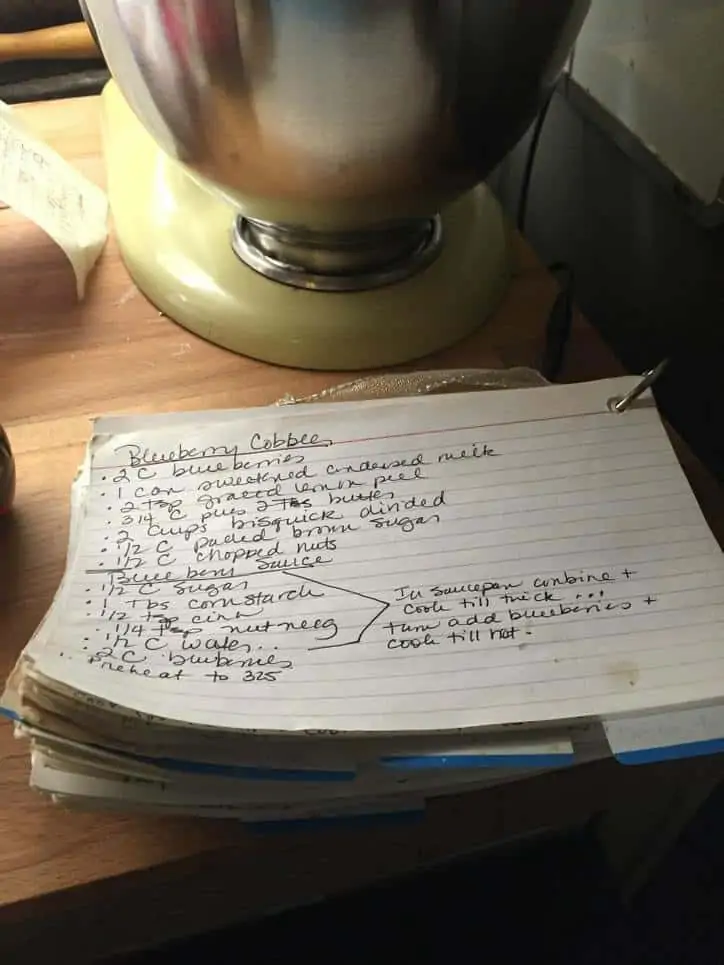 Blueberry Cobbler
· 2 C blueberries
· 1 can sweetened condensed milk
· 2 tsp grated lemon peel
· 3/4 C plus 2 Tbs butter
· 2 cups bisquick divided
· 1/2 C packed brown sugar
· 1/2 C chopped nuts
Blueberry Sauce
· 1/2 C sugar
· 1 Tbs cornstarch
· 1/2 tsp cinn
· 1/4 tsp nutmeg
· 1/2 C water..
· 2 C blueberries
·· Preheat to 325
In saucepan combine +
cook till thick...
turn add blueberries +
cook till hot.